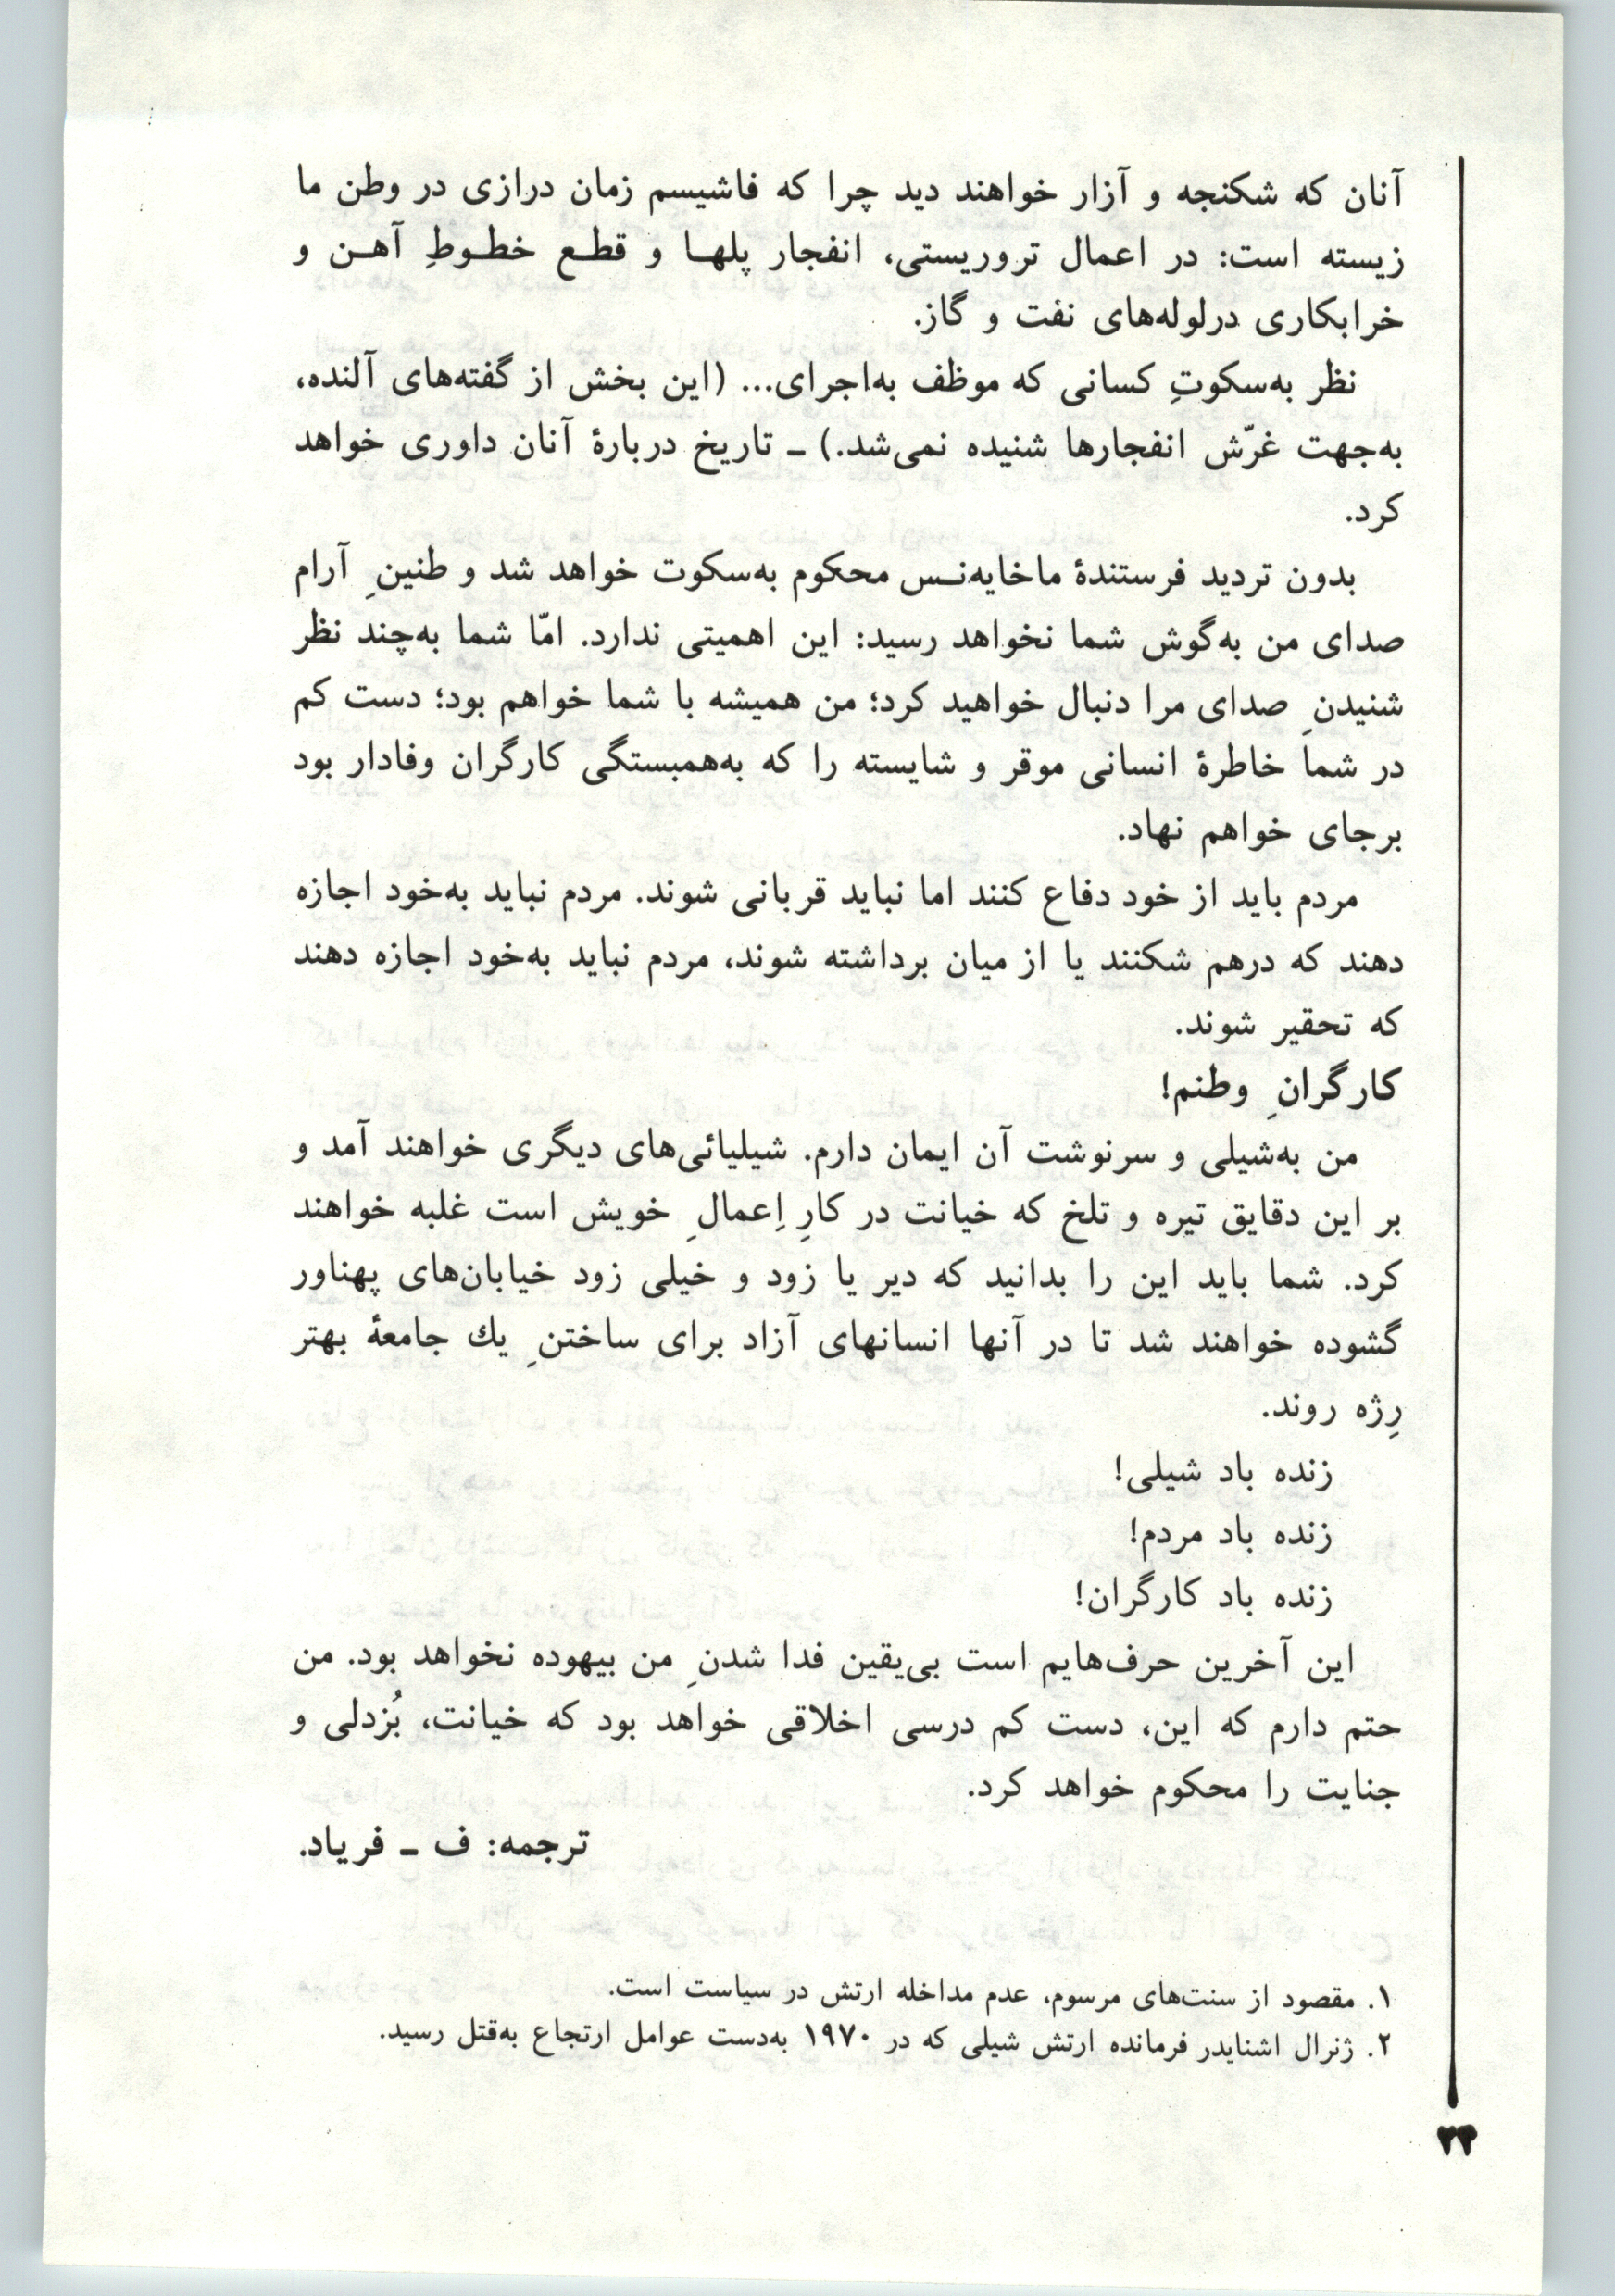 آنان که شکنجه و آزار خواهند دید چرا که فاشیسم زمان درازی در وطن ما
زیسته است: در اعمال تروریستی، انفجار پلها و قطع خطوطِ آهن و
خرابکاری درلوله‌های نفت و گاز.
نظر به‌سکوتِ کسانی که موظف به‌اجرای... (این بخش از گفته‌های آلنده،
به‌جهت غرّش انفجارها شنیده نمی‌شد.) ـ تاریخ دربارهٔ آنان داوری خواهد
کرد.
بدون تردید فرستندهٔ ماخایه‌نـس محکوم به‌سکوت خواهد شد و طنینِ آرام
صدای من به‌گوش شما نخواهد رسید: این اهمیتی ندارد. امّا شما به‌چند نظر
شنیدنِ صدای مرا دنبال خواهید کرد؛ من همیشه با شما خواهم بود؛ دست کم
در شما خاطرهٔ انسانی موقر و شایسته را که به‌همبستگی کارگران وفادار بود
برجای خواهم نهاد.
مردم باید از خود دفاع کنند اما نباید قربانی شوند. مردم نباید به‌خود اجازه
دهند که درهم شکنند یا از میان برداشته شوند، مردم نباید به‌خود اجازه دهند
که تحقیر شوند.
کارگرانِ وطنم!
من به‌شیلی و سرنوشت آن ایمان دارم. شیلیائی‌های دیگری خواهند آمد و
بر این دقایق تیره و تلخ که خیانت در کارِ اِعمالِ خویش است غلبه خواهند
کرد. شما باید این را بدانید که دیر یا زود و خیلی زود خیابان‌های پهناور
گشوده خواهند شد تا در آنها انسانهای آزاد برای ساختنِ یك جامعهٔ بهتر
رِژه روند.
زنده باد شیلی!
زنده باد مردم!
زنده باد کارگران!
این آخرین حرف‌هایم است بی‌یقین فدا شدنِ من بیهوده نخواهد بود. من
حتم دارم که این، دست کم درسی اخلاقی خواهد بود که خیانت، بُزدلی و
جنایت را محکوم خواهد کرد.
ترجمه: ف ـ فریاد.
۱. مقصود از سنت‌های مرسوم، عدم مداخله ارتش در سیاست است.
۲. ژنرال اشنایدر فرمانده ارتش شیلی که در ۱۹۷۰ به‌دست عوامل ارتجاع به‌قتل رسید.